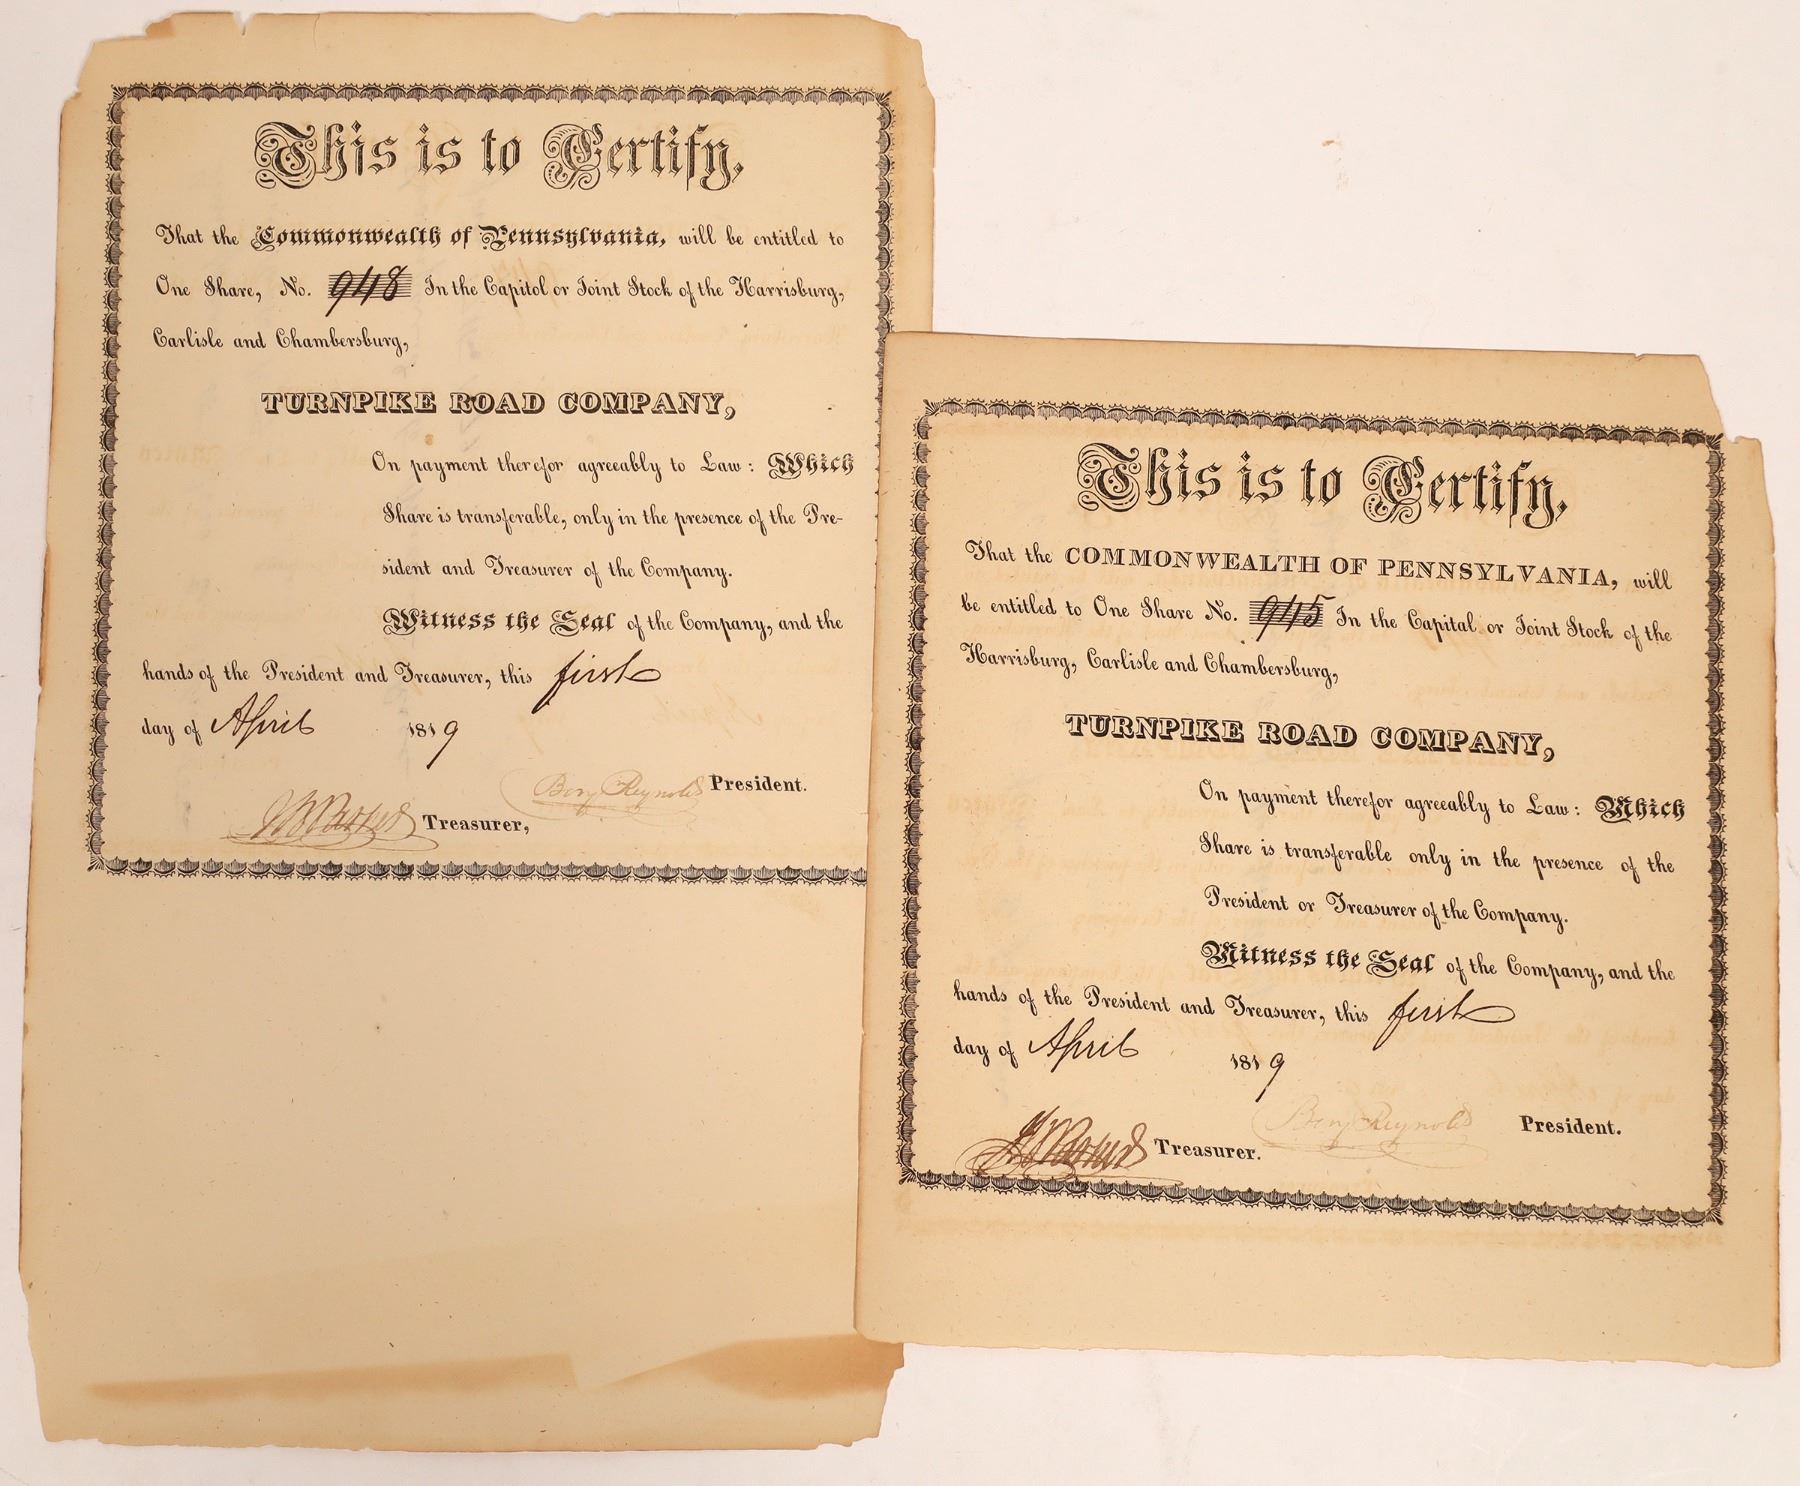 This is to Certify,
That the Commonwealth of Pennsylvania, will be entitled to
One Share, No. 948 In the Capitol or Joint Stock of the Harrisburg,
Carlisle and Chambersburg,
TURNPIKE ROAD COMPANY,
On payment therefor agreeably to Law: Which
Share is transferable, only in the presence of the Pre-
sident and Treasurer of the Company.
Witness the Seal of the Company, and the
hands of the President and Treasurer, this first
day of April 1819
Benj Reynolds President.
Treasurer,
This is to Certify,
That the COMMONWEALTH OF PENNSYLVANIA, will
be entitled to One Share No. 945 In the Capital or Joint Stock of the
Harrisburg, Carlisle and Chambersburg,
TURNPIKE ROAD COMPANY,
On payment therefor agreeably to Law: Which
Share is transferable only in the presence of the
President or Treasurer of the Company.
Witness the Seal of the Company, and the
hands of the President and Treasurer, this first
day of April 1819
Benj Reynolds President.
Treasurer.